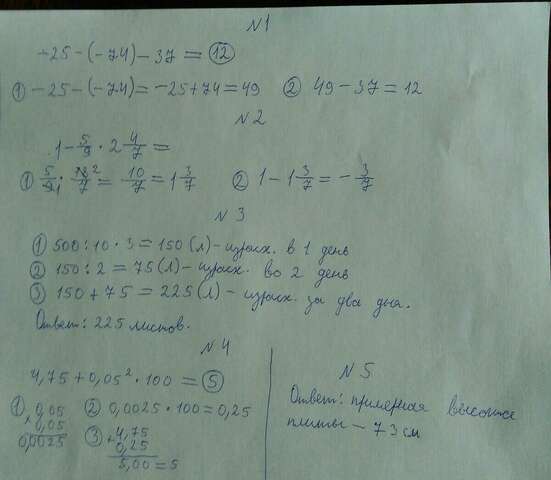 N1
-25-(-74)-37=12
① -25-(-74)=-25+74=49 ② 49-37=12
N2
1-5/9·2 4/7=
① 5/9·18/7=10/7=1 3/7 ② 1-1 3/7=-3/7
N3
① 500:10·3=150(л)-израсх. в 1 день
② 150:2=75(л)-израсх. во 2 день
③ 150+75=225(л)-израсх. за два дня.
Ответ: 225 листов.
N4
4,75+0,05²·100=5
① 0,05
×0,05
0,0025
② 0,0025·100=0,25
③ 4,75
+0,25
5,00=5
N5
Ответ: примерная высота
плиты - 73 см